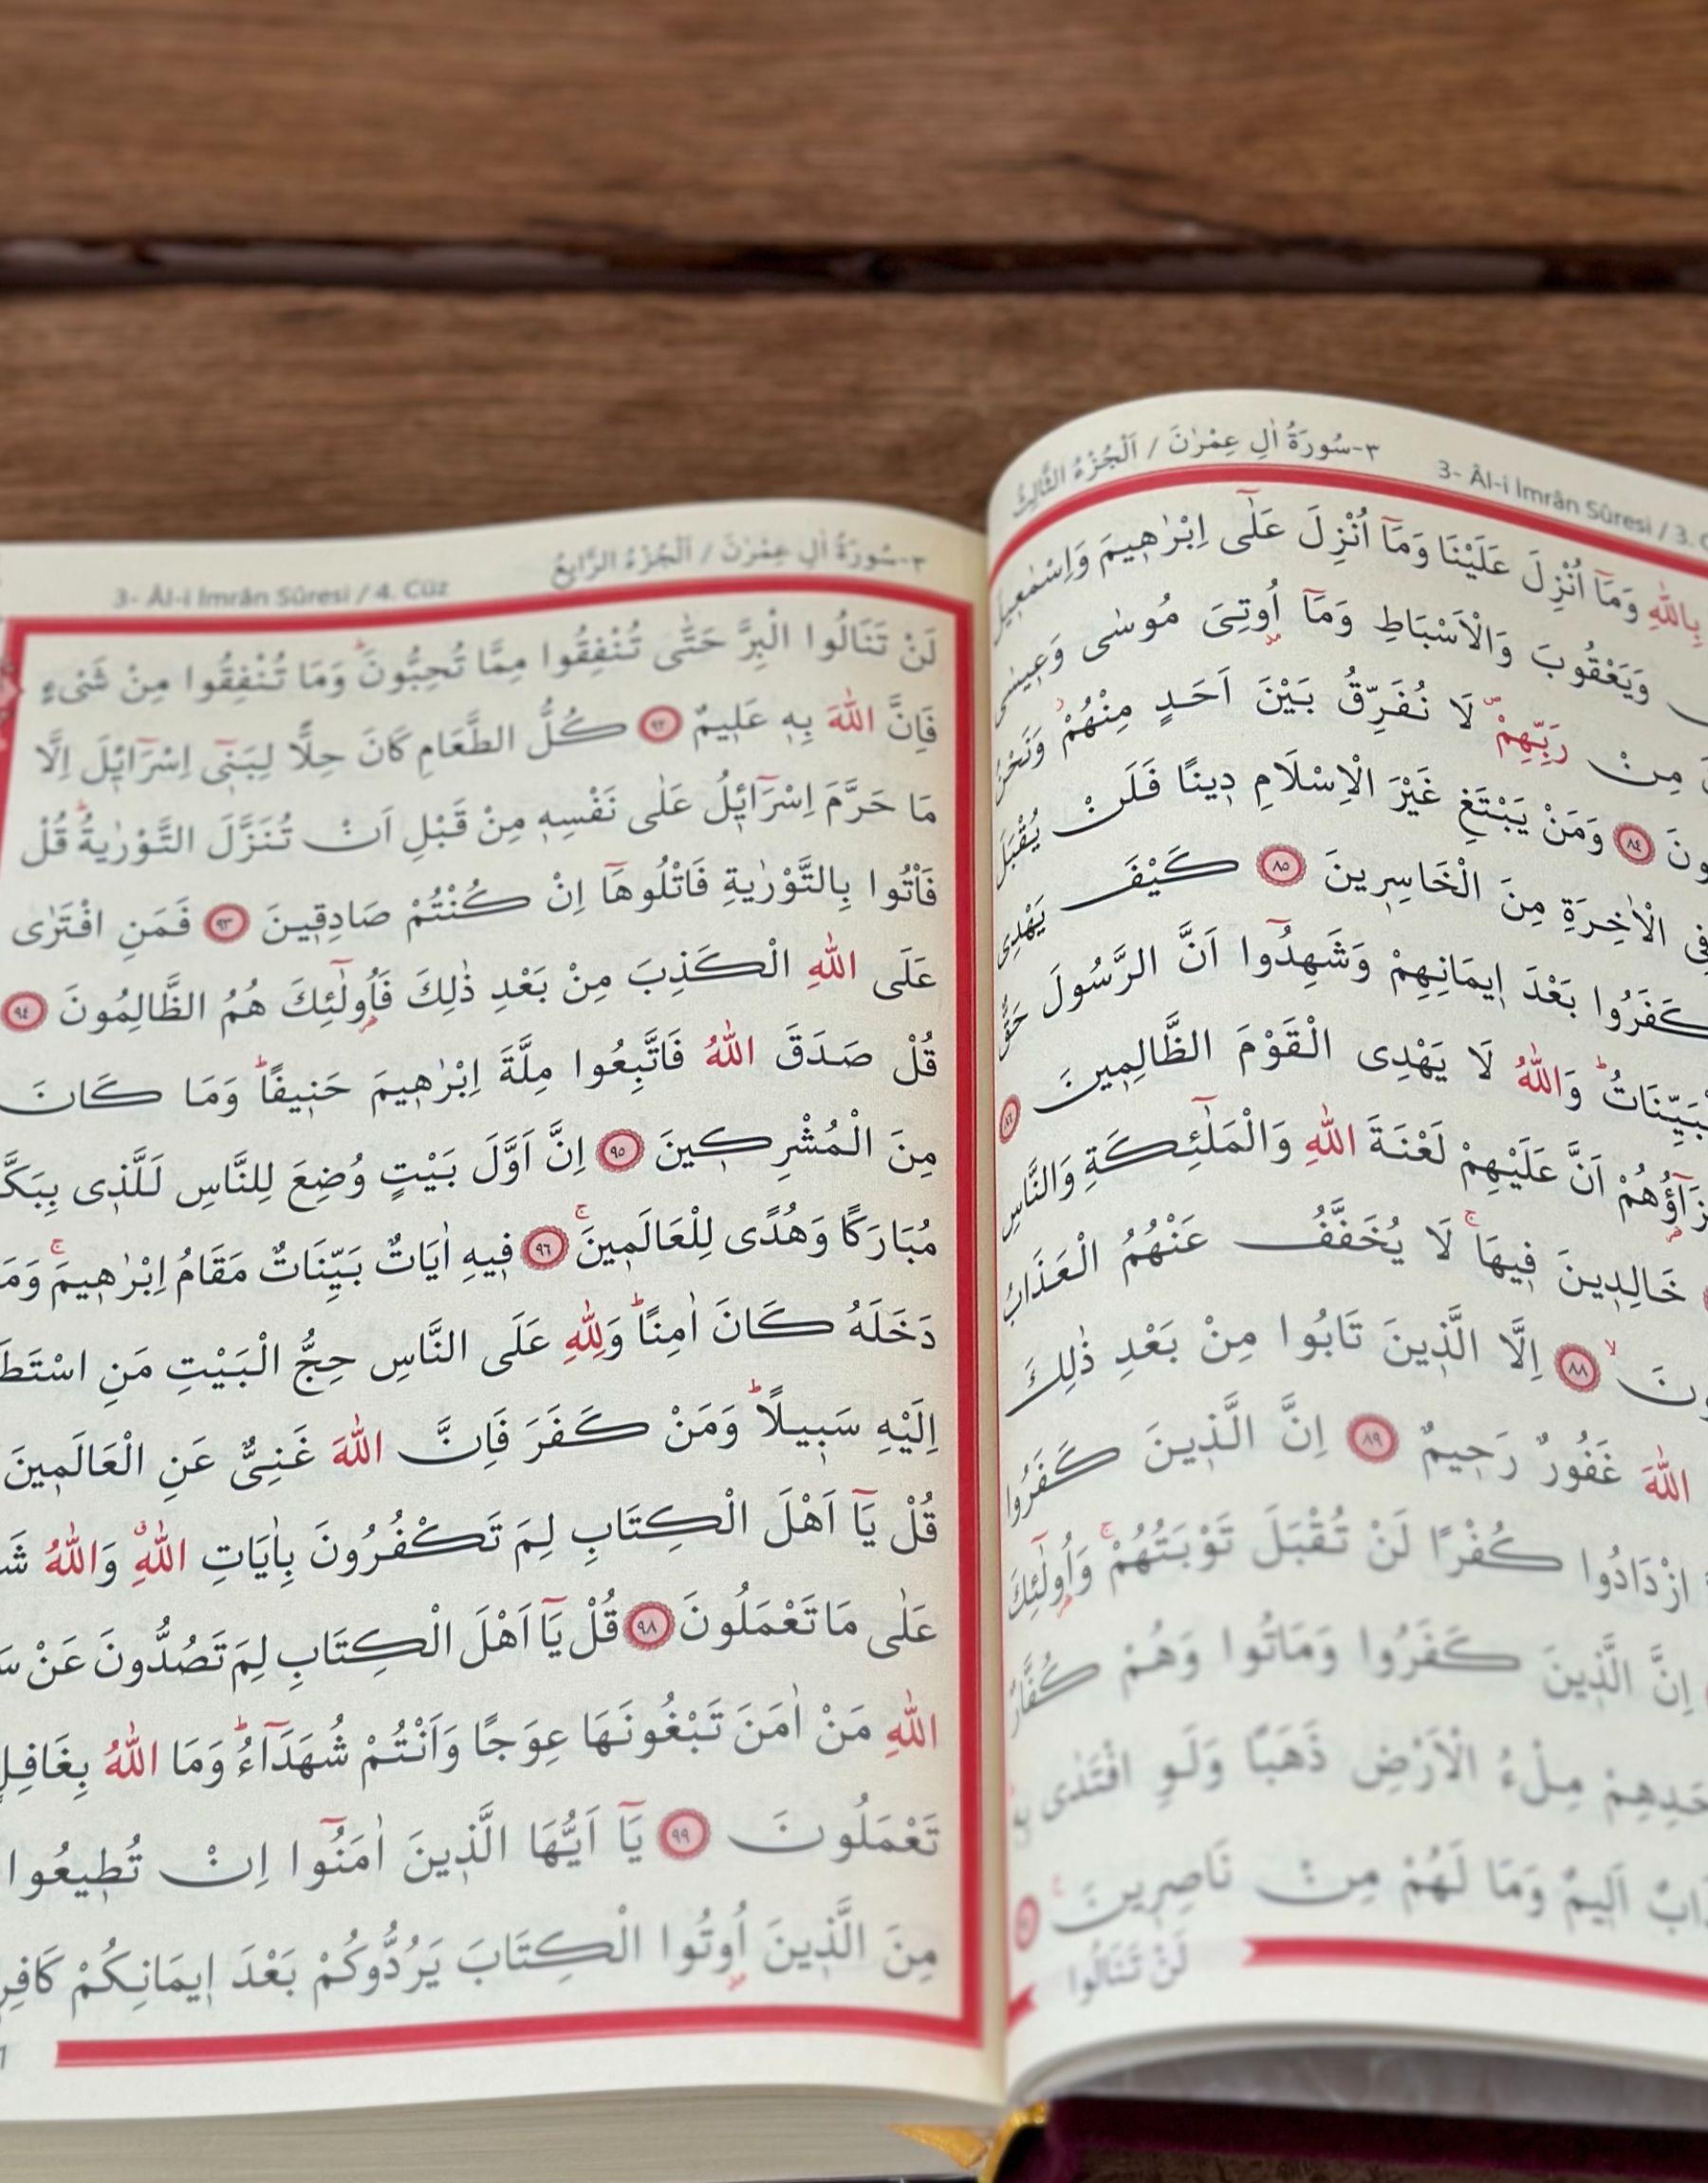 ٣-سُورَةُ اٰلِ عِمْرٰنَ / اَلْجُزْءُ الثَّالِثُ
3- Âl-i İmrân Sûresi / 3.
بِاللّٰهِ وَمَٓا اُنْزِلَ عَلَيْنَا وَمَٓا اُنْزِلَ عَلٰٓى اِبْرٰه۪يمَ وَاِسْمٰع۪يلَ
وَيَعْقُوبَ وَالْاَسْبَاطِ وَمَٓا اُو۫تِيَ مُوسٰى وَع۪يسٰى
مِنْ رَبِّهِمْۖ لَا نُفَرِّقُ بَيْنَ اَحَدٍ مِنْهُمْۘ وَنَحْنُ
ونَ ﴿٨٤﴾ وَمَنْ يَبْتَغِ غَيْرَ الْاِسْلَامِ د۪ينًا فَلَنْ يُقْبَلَ
فِي الْاٰخِرَةِ مِنَ الْخَاسِر۪ينَ ﴿٨٥﴾ كَيْفَ يَهْدِي
كَفَرُوا بَعْدَ ا۪يمَانِهِمْ وَشَهِدُٓوا اَنَّ الرَّسُولَ حَقٌّ
لْبَيِّنَاتُۜ وَاللّٰهُ لَا يَهْدِي الْقَوْمَ الظَّالِم۪ينَ ﴿٨٦﴾
زَٓاؤُ۬هُمْ اَنَّ عَلَيْهِمْ لَعْنَةَ اللّٰهِ وَالْمَلٰٓئِكَةِ وَالنَّاسِ
خَالِد۪ينَ ف۪يهَاۚ لَا يُخَفَّفُ عَنْهُمُ الْعَذَابُ
ونَۙ ﴿٨٨﴾ اِلَّا الَّذ۪ينَ تَابُوا مِنْ بَعْدِ ذٰلِكَ
اللّٰهَ غَفُورٌ رَح۪يمٌ ﴿٨٩﴾ اِنَّ الَّذ۪ينَ كَفَرُوا
ازْدَادُوا كُفْرًا لَنْ تُقْبَلَ تَوْبَتُهُمْۚ وَاُو۬لٰٓئِكَ
اِنَّ الَّذ۪ينَ كَفَرُوا وَمَاتُوا وَهُمْ كُفَّارٌ
حَدِهِمْ مِلْءُ الْاَرْضِ ذَهَبًا وَلَوِ افْتَدٰى
ذَابٌ اَل۪يمٌ وَمَا لَهُمْ مِنْ نَاصِر۪ينَۚ
لَنْ تَنَالُوا
٣-سُورَةُ اٰلِ عِمْرٰنَ / اَلْجُزْءُ الرَّابِعُ
3- Âl-i İmrân Sûresi / 4. Cüz
لَنْ تَنَالُوا الْبِرَّ حَتّٰى تُنْفِقُوا مِمَّا تُحِبُّونَۜ وَمَا تُنْفِقُوا مِنْ شَيْءٍ
فَاِنَّ اللّٰهَ بِه۪ عَل۪يمٌ ﴿٩٢﴾ كُلُّ الطَّعَامِ كَانَ حِلًّا لِبَن۪ٓي اِسْرَٓائ۪لَ اِلَّا
مَا حَرَّمَ اِسْرَٓائ۪لُ عَلٰى نَفْسِه۪ مِنْ قَبْلِ اَنْ تُنَزَّلَ التَّوْرٰيةُۜ قُلْ
فَأْتُوا بِالتَّوْرٰيةِ فَاتْلُوهَٓا اِنْ كُنْتُمْ صَادِق۪ينَ ﴿٩٣﴾ فَمَنِ افْتَرٰى
عَلَى اللّٰهِ الْكَذِبَ مِنْ بَعْدِ ذٰلِكَ فَاُو۬لٰٓئِكَ هُمُ الظَّالِمُونَ ﴿٩٤﴾
قُلْ صَدَقَ اللّٰهُ فَاتَّبِعُوا مِلَّةَ اِبْرٰه۪يمَ حَن۪يفًاۜ وَمَا كَانَ
مِنَ الْمُشْرِك۪ينَ ﴿٩٥﴾ اِنَّ اَوَّلَ بَيْتٍ وُضِعَ لِلنَّاسِ لَلَّذ۪ي بِبَكَّ
مُبَارَكًا وَهُدًى لِلْعَالَم۪ينَۚ ﴿٩٦﴾ ف۪يهِ اٰيَاتٌ بَيِّنَاتٌ مَقَامُ اِبْرٰه۪يمَۚ وَمَ
دَخَلَهُ كَانَ اٰمِنًاۜ وَلِلّٰهِ عَلَى النَّاسِ حِجُّ الْبَيْتِ مَنِ اسْتَطَ
اِلَيْهِ سَب۪يلًاۜ وَمَنْ كَفَرَ فَاِنَّ اللّٰهَ غَنِيٌّ عَنِ الْعَالَم۪ينَ
قُلْ يَٓا اَهْلَ الْكِتَابِ لِمَ تَكْفُرُونَ بِاٰيَاتِ اللّٰهِۗ وَاللّٰهُ شَ
عَلٰى مَا تَعْمَلُونَ ﴿٩٨﴾ قُلْ يَٓا اَهْلَ الْكِتَابِ لِمَ تَصُدُّونَ عَنْ سَ
اللّٰهِ مَنْ اٰمَنَ تَبْغُونَهَا عِوَجًا وَاَنْتُمْ شُهَدَٓاءُۜ وَمَا اللّٰهُ بِغَافِلٍ
تَعْمَلُونَ ﴿٩٩﴾ يَٓا اَيُّهَا الَّذ۪ينَ اٰمَنُٓوا اِنْ تُط۪يعُوا
مِنَ الَّذ۪ينَ اُو۫تُوا الْكِتَابَ يَرُدُّوكُمْ بَعْدَ ا۪يمَانِكُمْ كَافِر